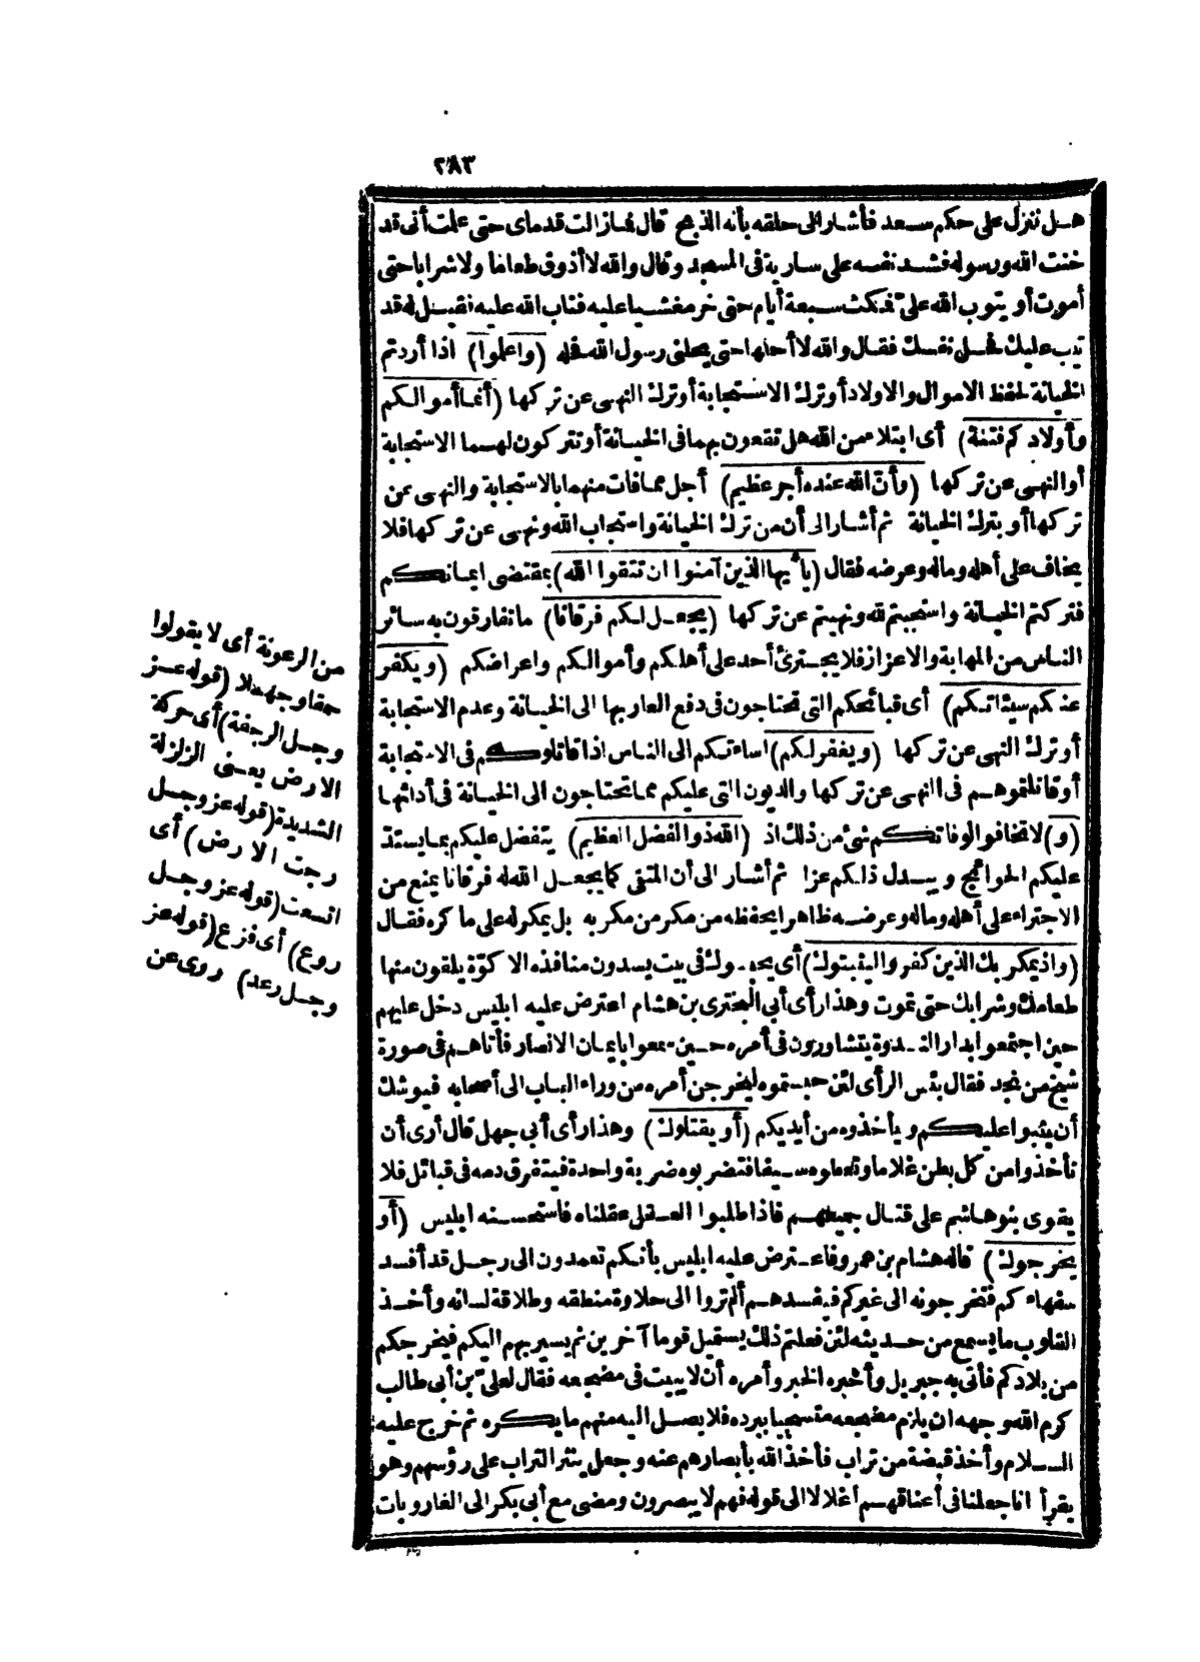 ٢٨٣
هل ننزل على حكم سعد فأشار الى حلقه بأنه الذبح قال فما زالت قدماى حتى علمت أنى قد
خنت الله ورسوله فشد نفسه على سارية فى المسجد وقال والله لا أذوق طعاما ولا شرابا حتى
أموت أو يتوب الله علىّ فمكث سبعة أيام حتى خر مغشيا عليه فتاب الله عليه فقيل له قد
تيب عليك فحل نفسك فقال والله لا أحلها حتى يحلنى رسول الله فحله (واعلموا) اذا أردتم
الخيانة لحفظ الاموال والاولاد أو ترك الاستجابة أو ترك النهى عن تركها (أنما أموالكم
وأولادكم فتنة) أى ابتلاء من الله هل تقعون بهما فى الخيانة أو تتركون لهما الاستجابة
أو النهى عن تركها (وأن الله عنده أجر عظيم) أجل مما فات منهما بالاستجابة والنهى عن
تركها أو بترك الخيانة ثم أشار الى أن من ترك الخيانة واستجاب الله ونهى عن تركها فلا
يخاف على أهله وماله وعرضه فقال (يا أيها الذين آمنوا ان تتقوا الله) بمقتضى ايمانكم
فتركتم الخيانة واستجبتم لله ونهيتم عن تركها (يجعل لكم فرقانا) ما تفارقون به سائر
الناس من المهابة والاعزاز فلا يجترئ أحد على أهلكم وأموالكم واعراضكم (ويكفر
عنكم سيئاتكم) أى قبائحكم التى تحتاجون فى دفع العار بها الى الخيانة وعدم الاستجابة
أو ترك النهى عن تركها (ويغفر لكم) اساءتكم الى الناس اذا قاتلوكم فى الاستجابة
أو قاتلتموهم فى النهى عن تركها والديون التى عليكم مما تحتاجون الى الخيانة فى أدائها
(و) لا تخافوا لو فاتكم شئ من ذلك اذ (الله ذو الفضل العظيم) يتفضل عليكم بما يستد
عليكم الحوائج ويبدل ذلكم عزا ثم أشار الى أن المتقى كما يجعل الله له فرقانا يمنع من
الاجتراء على أهله وماله وعرضه ظاهرا يحفظه من مكر من مكر به بل يمكر له على ما كره فقال
(واذ يمكر بك الذين كفروا ليثبتوك) أى يحبسوك فى بيت يسدون منافذه الا كوّة يلقون منها
طعامك وشرابك حتى تموت وهذا رأى أبى البخترى بن هشام اعترض عليه ابليس دخل عليهم
حين اجتمعوا بدار الندوة يتشاورون فى أمره حين سمعوا بايمان الانصار فأتاهم فى صورة
شيخ من نجد فقال بئس الرأى لئن حبستموه ليخرجن أمره من وراء الباب الى أصحابه فيوشك
أن يثبوا عليكم ويأخذوه من أيديكم (أو يقتلوك) وهذا رأى أبى جهل قال أرى أن
تأخذوا من كل بطن غلاما وتعطوه سيفا فتضربوه ضربة واحدة فيتفرق دمه فى قبائل فلا
يقوى بنو هاشم على قتال جميعهم فاذا طلبوا العقل عقلناه فاستحسنه ابليس (أو
يخرجوك) قاله هشام بن عمرو فاعترض عليه ابليس بأنكم تعمدون الى رجل قد أفسد
سفهاءكم فتخرجونه الى غيركم فيفسدهم ألم تروا الى حلاوة منطقه وطلاقة لسانه وأخذ
القلوب ما يسمع من حديثه لئن فعلتم ذلك يستميل قوما آخرين ثم يسير بهم اليكم فيخرجكم
من بلادكم فأتى به جبريل وأخبره الخبر وأمره أن لا يبيت فى مضجعه فقال لعلىّ بن أبى طالب
كرم الله وجهه ان يلزم مضجعه متسجيا ببرده فلا يصل اليه منهم ما يكره ثم خرج عليه
السلام وأخذ قبضة من تراب فأخذ الله بأبصارهم عنه وجعل ينثر التراب على رؤسهم وهو
يقرأ انا جعلنا فى أعناقهم أغلالا الى قوله فهم لا يبصرون ومضى مع أبى بكر الى الغار وبات
من الرعونة أى لا يقولوا
حمقا وجهلا (قوله عز
وجل الرجفة) أى حركة
الارض يعنى الزلزلة
الشديدة (قوله عز وجل
رحبت الارض) أى
اتسعت (قوله عز وجل
روع) أى فزع (قوله عز
وجل رعد) روى عن